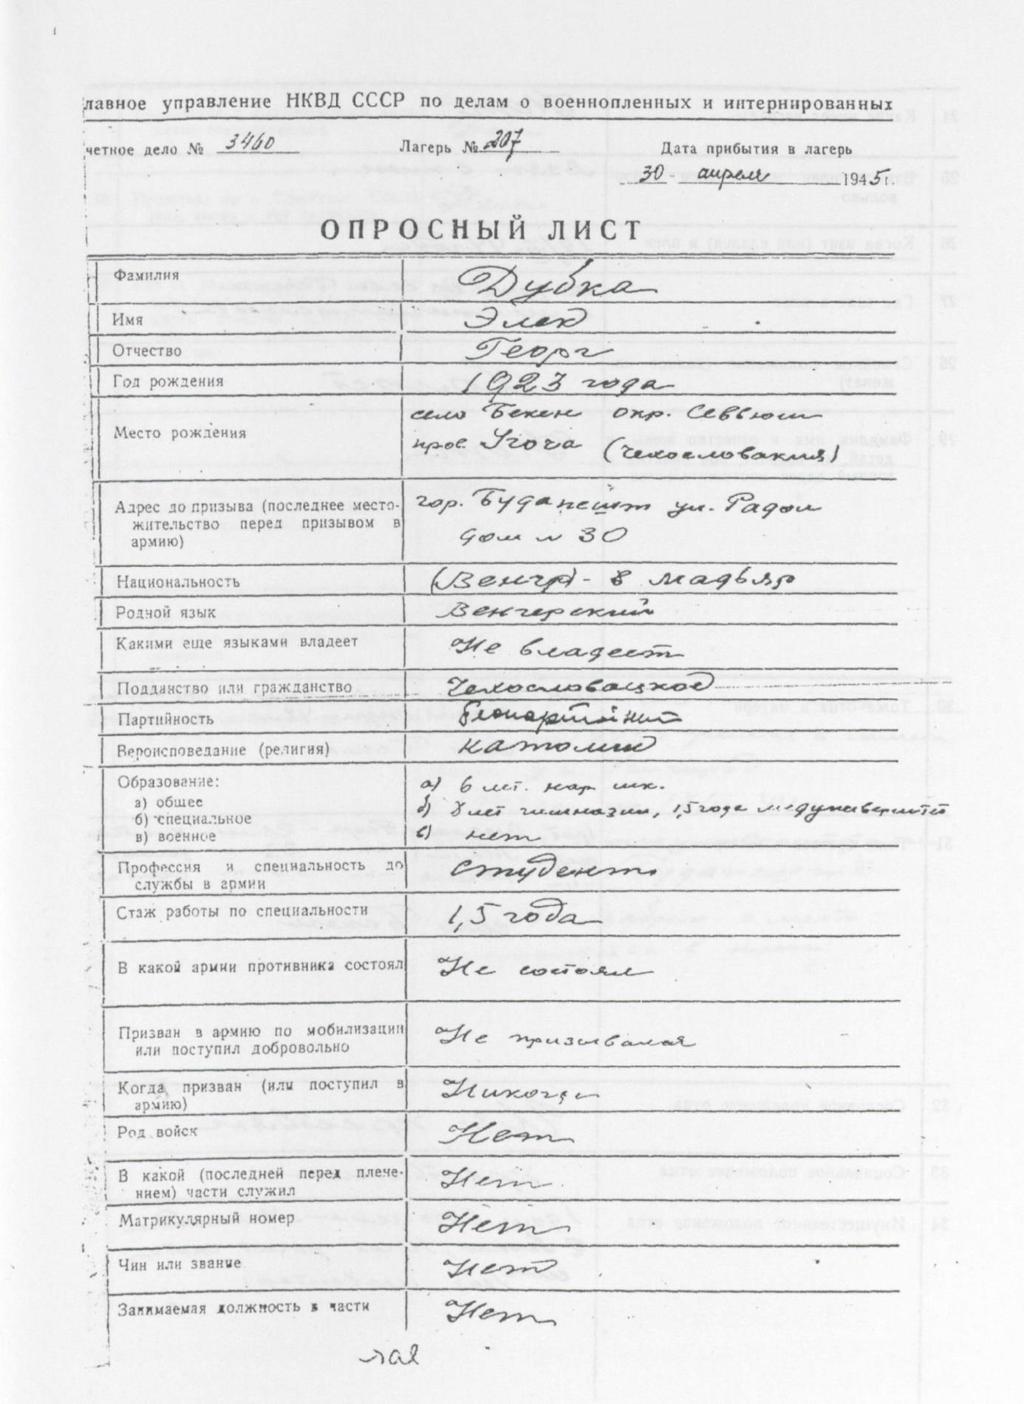 лавное управление НКВД СССР по делам о военнопленных и интернированных
четное дело № 3460 Лагерь № 207 Дата прибытия в лагерь
30 апреля 1945 г.
ОПРОСНЫЙ ЛИСТ
Фамилия Дубка
Имя Элек
Отчество Георг
Год рождения 1923 года
село Бекен окр. Севлюш
Место рождения
пров. Угоча (Чехословакия)
Адрес до призыва (последнее место- гор. Будапешт ул.
жительство перед призывом в дом № 30
армию)
Национальность (Венгр) - в мадьяр
Родной язык Венгерский
Какими еще языками владеет Не владеет
Подданство или гражданство Чехословацкое
Партийность Беспартийный
Вероисповедание (религия) католик
Образование: а) 6 лет. нар. шк.
а) общее
б) специальное б) 8 лет гимназии, 1,5 года медуниверситет
в) военное в) нет
Профессия и специальность до студент
службы в армии
Стаж работы по специальности 1,5 года
В какой армии противника состоял Не состоял
Призван в армию по мобилизации Не призывался
или поступил добровольно
Когда призван (или поступил в Никогда
армию)
Род войск Нет
В какой (последней перед плече- Нет
нием) части служил
Матрикулярный номер Нет
Чин или звание Нет
Занимаемая должность в части Нет